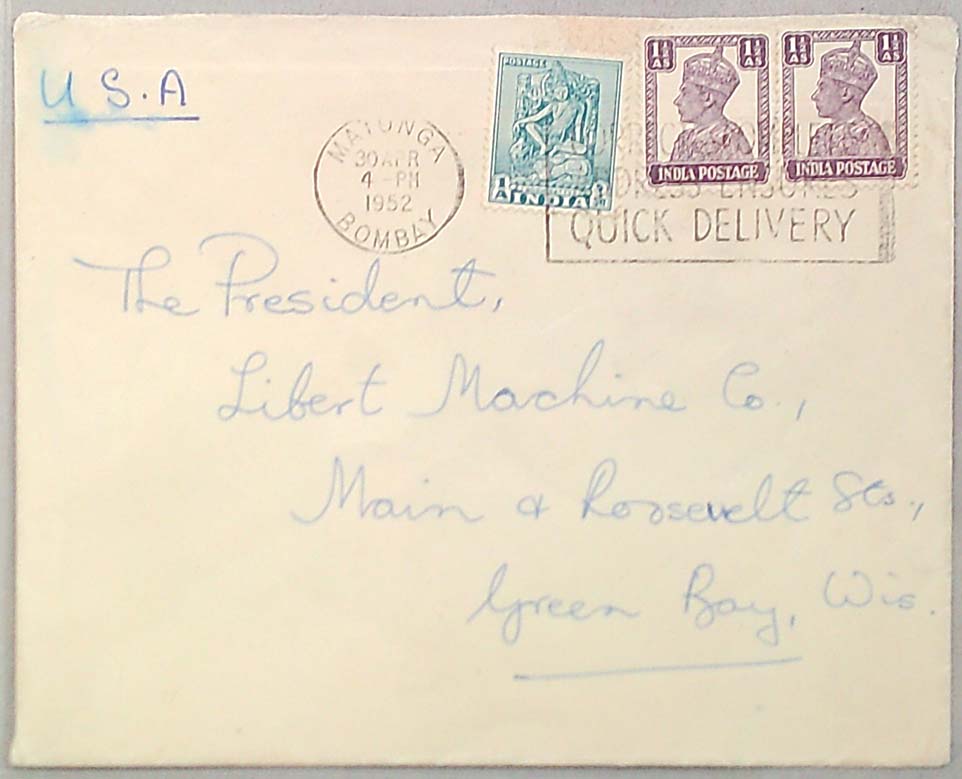 U.S.A
MATUNGA
30 APR
4 - PM
1952
BOMBAY
POSTAGE
1 A
INDIA
1½ AS
1½ AS
INDIA POSTAGE
1½ AS
1½ AS
INDIA POSTAGE
ENSURES
QUICK DELIVERY
The President,
Libert Machine Co.,
Main & Roosevelt Sts.,
Green Bay, Wis.